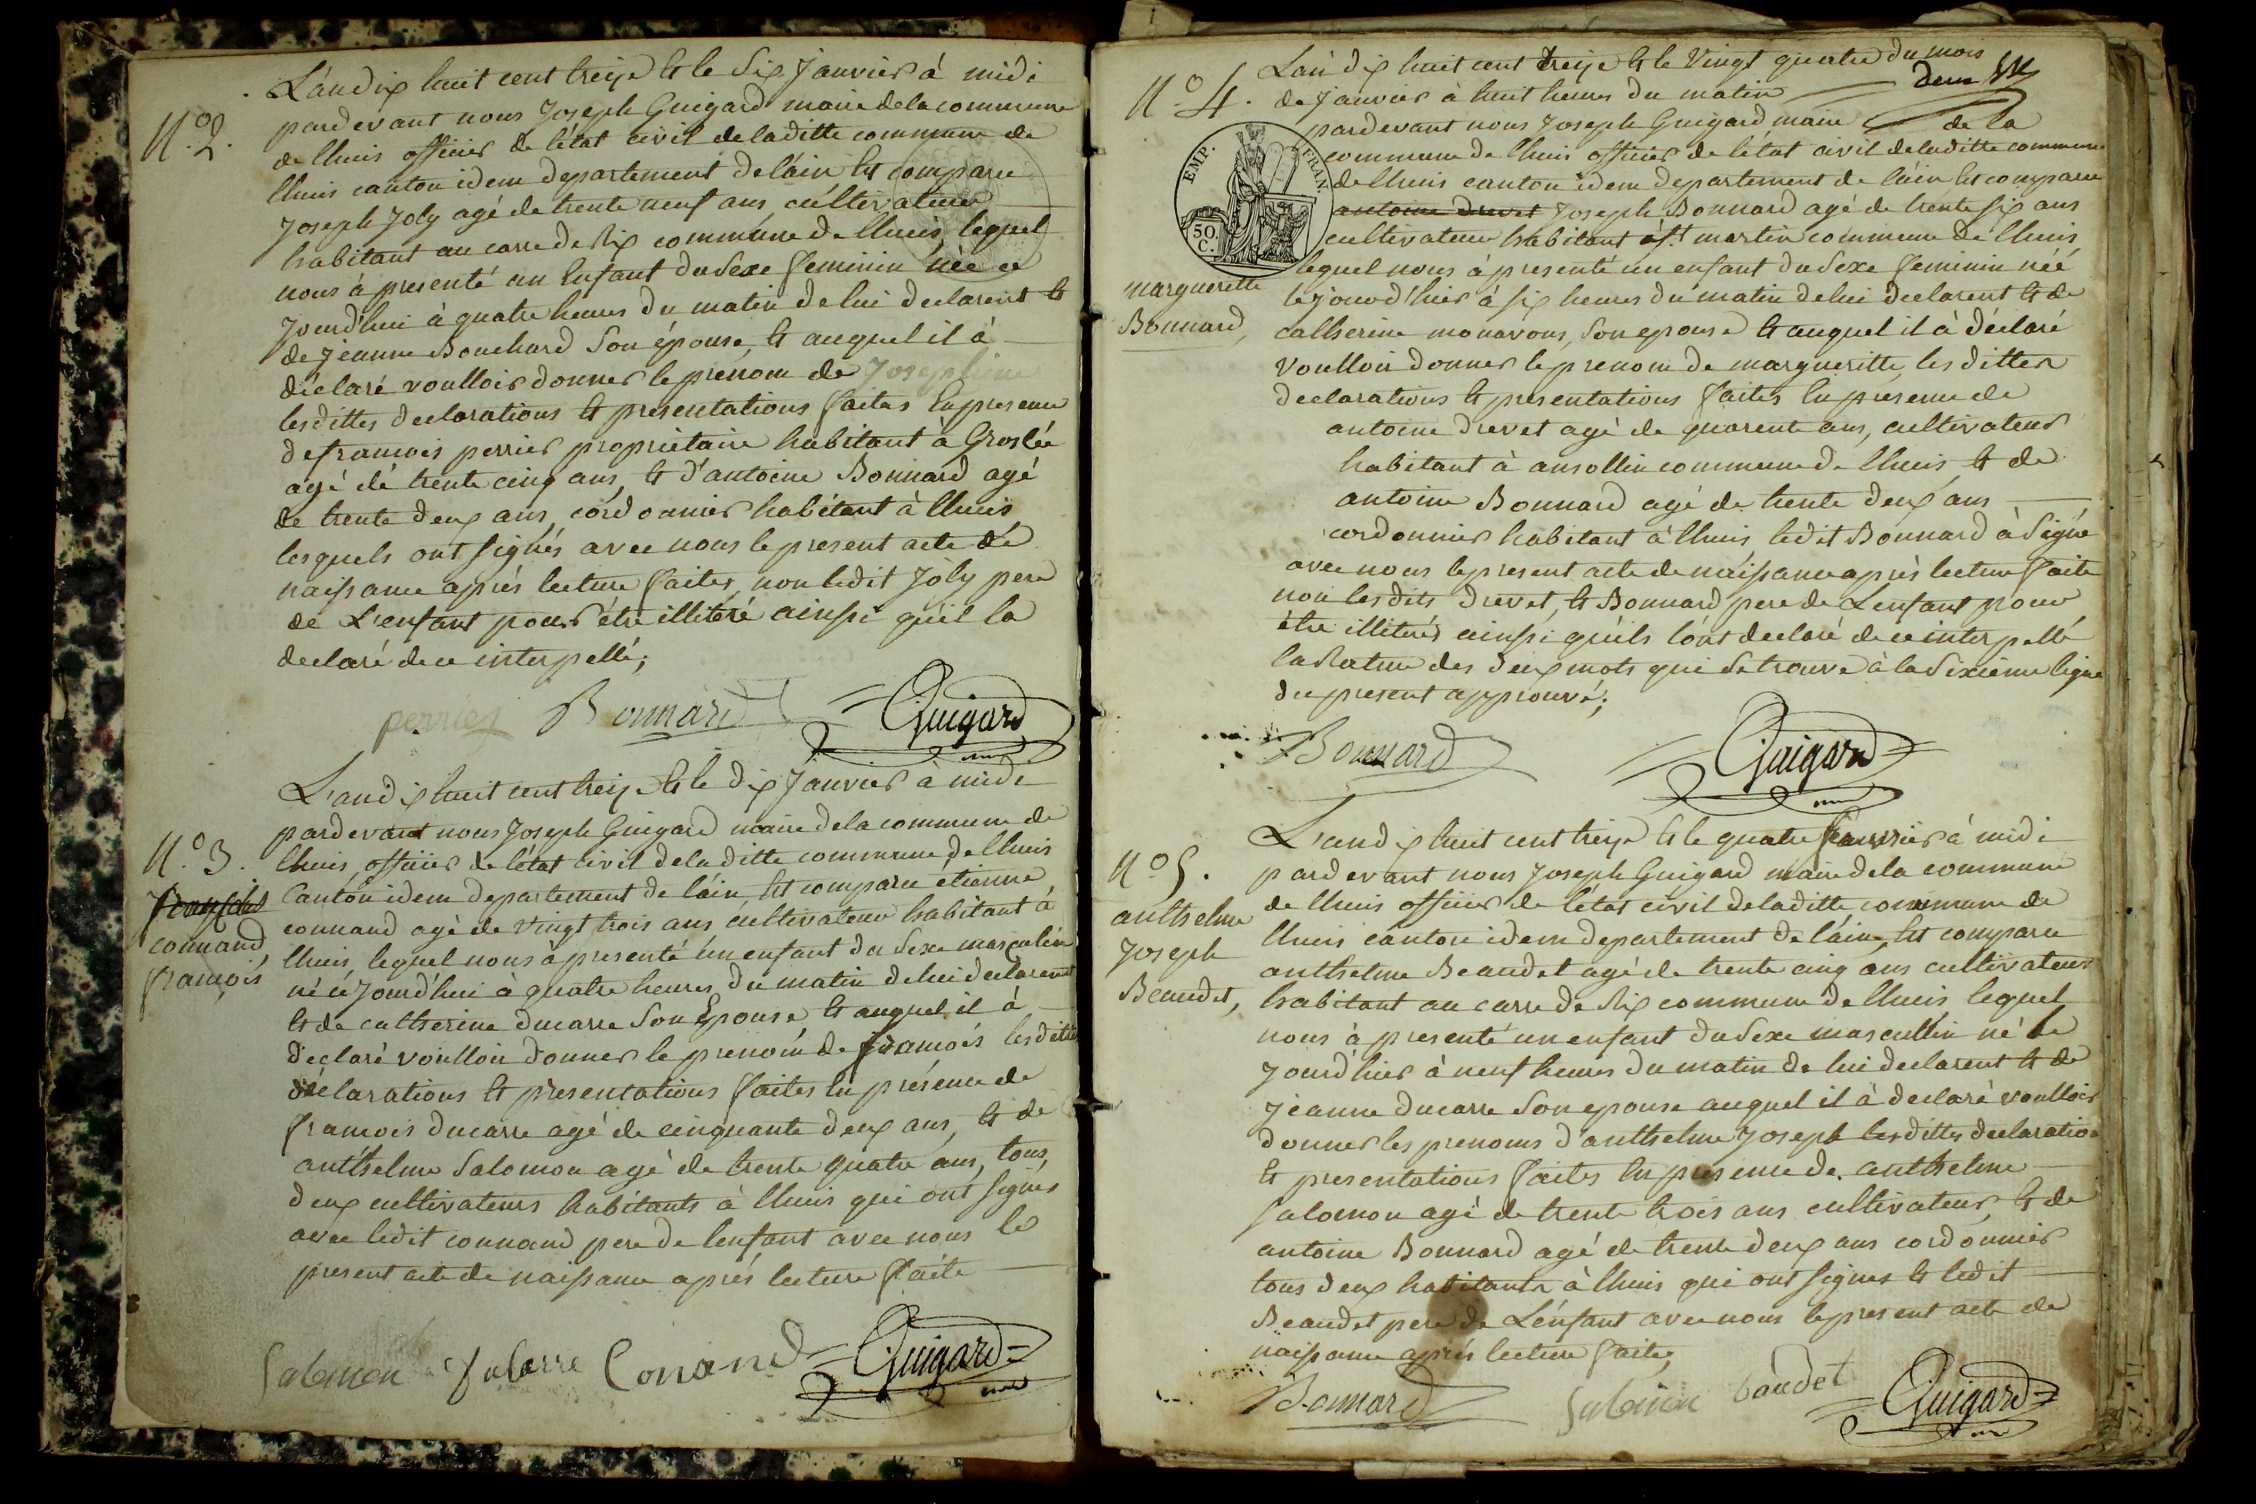 N.º 2.
L'an dix huit cent treize et le Six Janvier à midi
pardevant nous Joseph Guigard maire de la commune
de lhuis officier de l'état civil de laditte commune de
lhuis canton idem departement de láin Est comparu
Joseph Joly agé de trente neuf ans, cultivateur
habitant au carre de Rix commune de lhuis, lequel
nous à presenté un Enfant du Sexe feminin née ce
Jourd'hui à quatre heures du matin de lui declarent et
de jeanne Bouchard Son épouse, et auquel il à
déclaré voulloir donner le prenom de Josephine
lesdittes declarations et presentations faites En presence
de francois perrier propriétaire habitant à Groslée
agé de trente cinq ans, et d'antoine Bonnard agé
de trente deux ans, cordonnier habitant à lhuis,
lesquels ont signés avec nous le present acte de
naissance aprés lecture faites, non ledit Joly pere
de L'enfant pour être illiteré ainssi qu'il la
declaré de ce interpellé;
perrier Bonnard Guigard
N.º 3.
conand,
francois
L'an dix huit cent treize et le dix Janvier à midi
pardevant nous Joseph Guigard maire de la commune de
lhuis, officier de l'état civil de laditte commune de lhuis
Canton idem departement de láin Est comparu étienne
connand agé de vingt trois ans cultivateur habitant à
lhuis, lequel nous à presenté un enfant du Sexe masculin
né ce Jourd'hui à quatre heures du matin de lui declarent
et de catherine ducarre Son Epouse, et auquel il à
declaré voulloir donner le prenom de francois lesdittes
déclarations et presentations faites En présence de
francois ducarre agé de cinquante deux ans, et de
anthelme Salomon agé de trente quatre ans, tous
deux cultivateurs habitants à lhuis qui ont signés
avec ledit connand pere de lenfant avec nous le
present acte de naissance aprés lecture faite
Salomon Conand Guigard
N.º 4.
marguerette
Bonnard,
EMP. FRAN.
50. C.
L'an dix huit cent treize et le Vingt quatre du mois
de Janvier à huit heures du matin
pardevant nous Joseph Guigard maire de la
commune de lhuis officier de l'état civil de laditte commune
de lhuis canton idem departement de láin Est comparu
antoine drevet Joseph Bonnard agé de trente Six ans
cultivateur habitant à St martin commune de lhuis,
lequel nous à presenté un enfant du Sexe feminin néé
le jourd'hier à six heures du matin de lui declarent et de
catherine monavons, Son epouse et auquel il à déclaré
voulloir donner le prenom de margueritte, les dittes
declarations et presentations faites En presence de
antoine drevet agé de quarente ans, cultivateur
habitant à ansollin commune de lhuis, et de
antoine Bonnard agé de trente deux ans
cordonnier habitant à lhuis, ledit Bonnard à Signé
avec nous le present acte de naissance aprés lecture faite
non lesdits drevet, et Bonnard pere de Lenfant pour
être illiterés ainssi qu'ils lónt declaré de ce interpellé
la Rature des deux mots qui Se trouve à la Sixieme ligne
du present approuvé;
Bonnard Guigard
N.º 5.
anthelme
Joseph
Beaudet,
L'an dix huit cent treize et le quatre fevrier à midi
pardevant nous Joseph Guigard maire de la commune
de lhuis officier de l'état civil de laditte commune de
lhuis canton idem departement de láin, Est comparu
anthelme Beaudet agé de trente cinq ans cultivateur
habitant au carre de Rix commune de lhuis, lequel
nous à presenté un enfant du Sexe mascullin né le
jourd'hier à neuf heures du matin de lui declarent et de
jeanne ducarre Son epouse auquel il à declaré voulloir
donner les prenoms d'anthelme Joseph lesdittes declaration
et presentations faites En presence de anthelme
Salomon agé de trente trois ans cultivateur, et de
antoine Bonnard agé de trente deux ans cordonnier
tous deux habitants à lhuis qui ont signés et ledit
Beaudet pere de L'énfant avec nous le present acte de
naissance aprés lecture faite,
Bonnard Salomon baudet Guigard